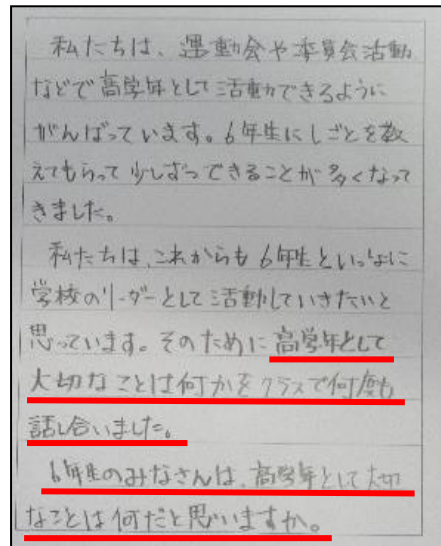 私たちは、運動会や委員会活動
などで高学年として活動できるように
がんばっています。6年生にしごとを教
えてもらって少しずつできることが多くなって
きました。
私たちは、これからも6年生といっしょに
学校のリーダーとして活動していきたいと
思っています。そのために高学年として
大切なことは何かをクラスで何度も
話し合いました。
6年生のみなさんは、高学年として大切
なことは何だと思いますか。